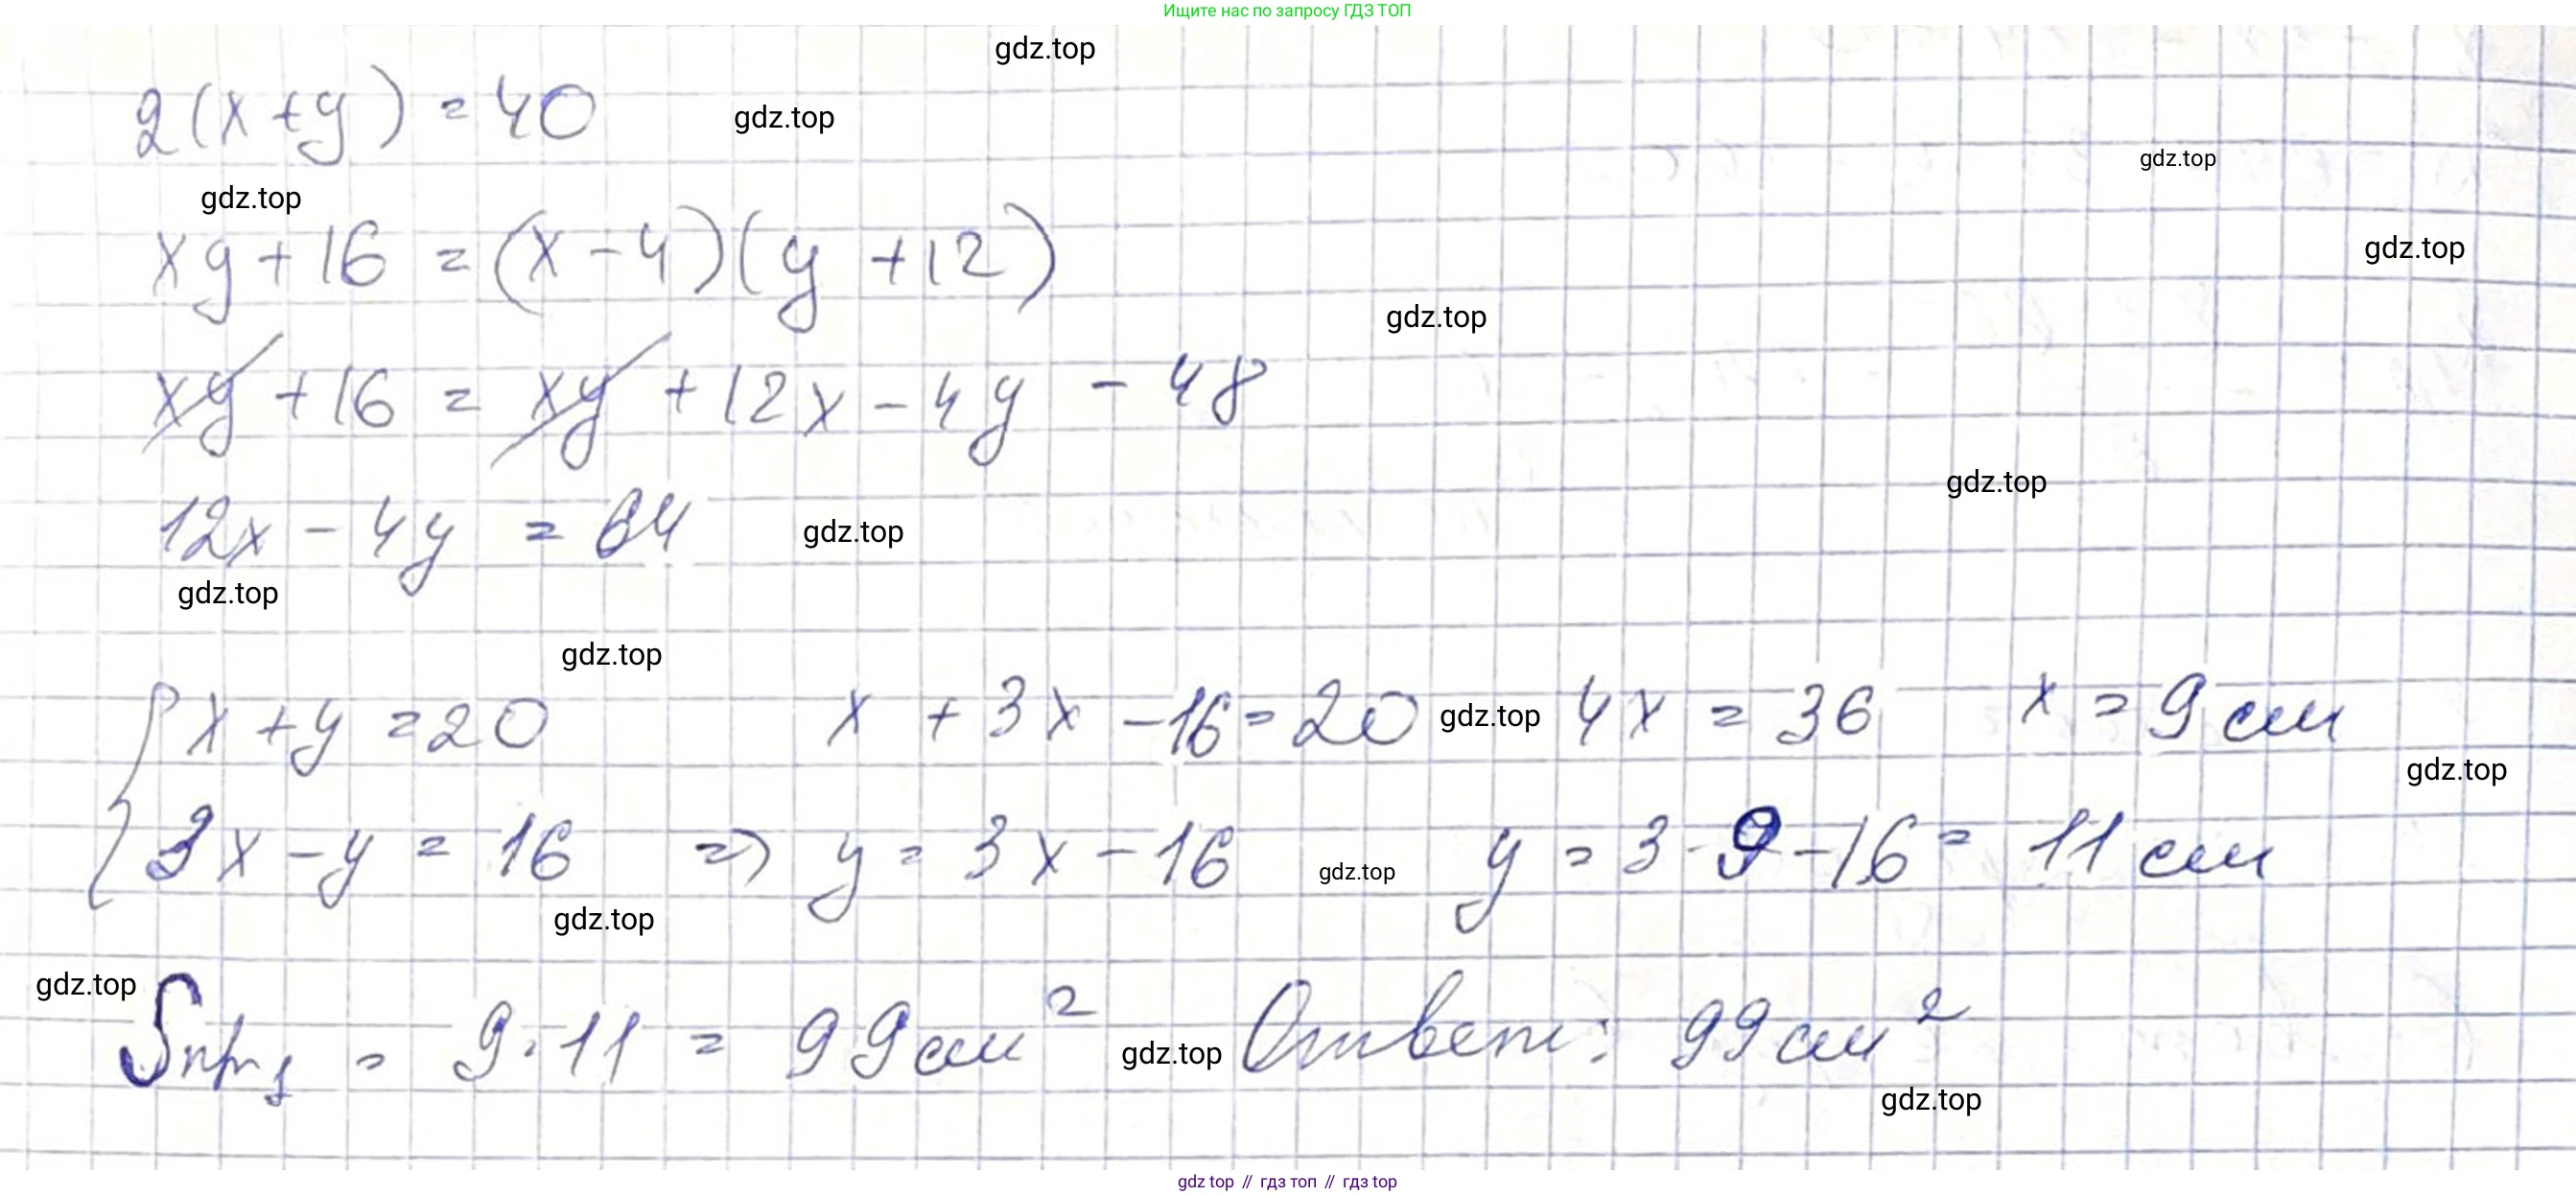 Ищите нас по запросу ГДЗ ТОП
gdz.top
2(x+y) = 40 gdz.top
gdz.top
gdz.top
xy + 16 = (x - 4)(y + 12) gdz.top
gdz.top
xy + 16 = xy + 12x - 4y - 48
gdz.top
12x - 4y = 64 gdz.top
gdz.top
gdz.top
x + y = 20 x + 3x - 16 = 20 gdz.top 4x = 36 x = 9 см
gdz.top
3x - y = 16 => y = 3x - 16 gdz.top y = 3 · 9 - 16 = 11 см
gdz.top
gdz.top
Sпр1 = 9 · 11 = 99 см² gdz.top Ответ: 99 см²
gdz.top
gdz top // гдз топ // гдз top